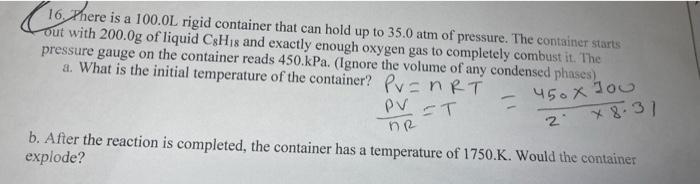 16. There is a 100.0L rigid container that can hold up to 35.0 atm of pressure. The container starts
out with 200.0g of liquid C₈H₁₈ and exactly enough oxygen gas to completely combust it. The
pressure gauge on the container reads 450.kPa. (Ignore the volume of any condensed phases)
a. What is the initial temperature of the container? PV = nRT
PV/nR = T = 450 x 100 / 2. x 8.31
b. After the reaction is completed, the container has a temperature of 1750.K. Would the container
explode?